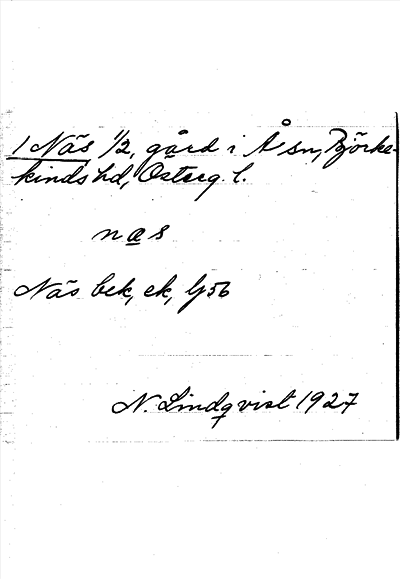 1 Näs 1/2, gård i Å sn, Björke-
kinds hd, Österg. l.
næs
Näs bek, ek, lj 56
N. Lindqvist 1927